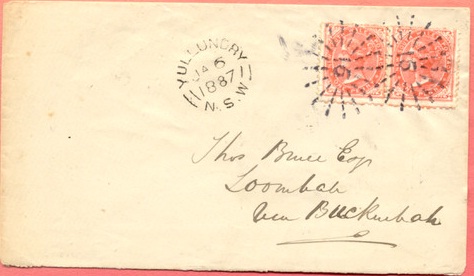 YULLUNDRY
JA 6
1887
N.S.W
Thos Bruce Esq
Loombah
via Buckinbah